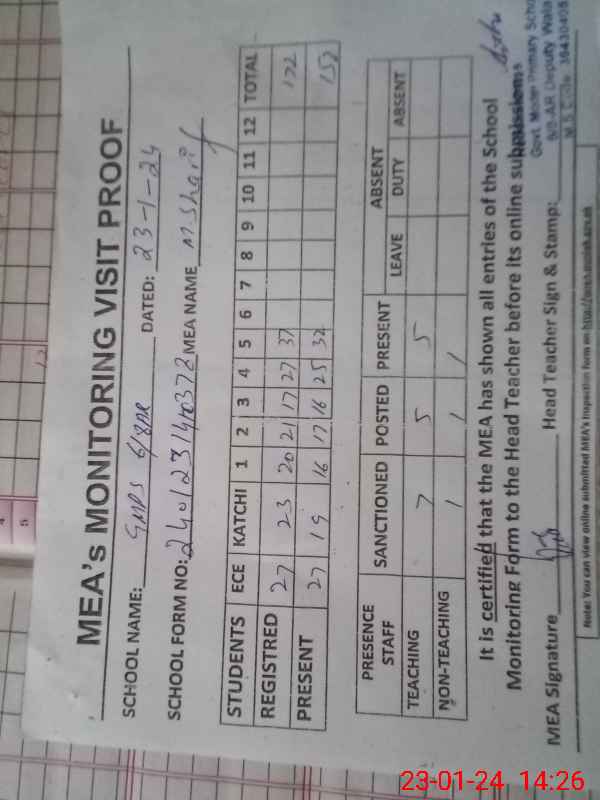 MEA's MONITORING VISIT PROOF
SCHOOL NAME: GMPS 6/8AR DATED: 23-1-24
SCHOOL FORM NO: MEA NAME M-Sharif
STUDENTS ECE KATCHI 1 2 3 4 5 6 7 8 9 10 11 12 TOTAL
REGISTRED 27 23 20 21 17 27 37 172
PRESENT 27 19 16 17 16 25 32 152
PRESENCE STAFF SANCTIONED POSTED PRESENT ABSENT
LEAVE DUTY ABSENT
TEACHING 7 5 5
NON-TEACHING 1 1 1
It is certified that the MEA has shown all entries of the School
Monitoring Form to the Head Teacher before its online submissions
MEA Signature Head Teacher Sign & Stamp:
Govt. Model Primary Scho
6/8-AR Deputy Wala
Note: You can view online submitted MEA's inspection form on
4
5
12
23-01-24 14:26